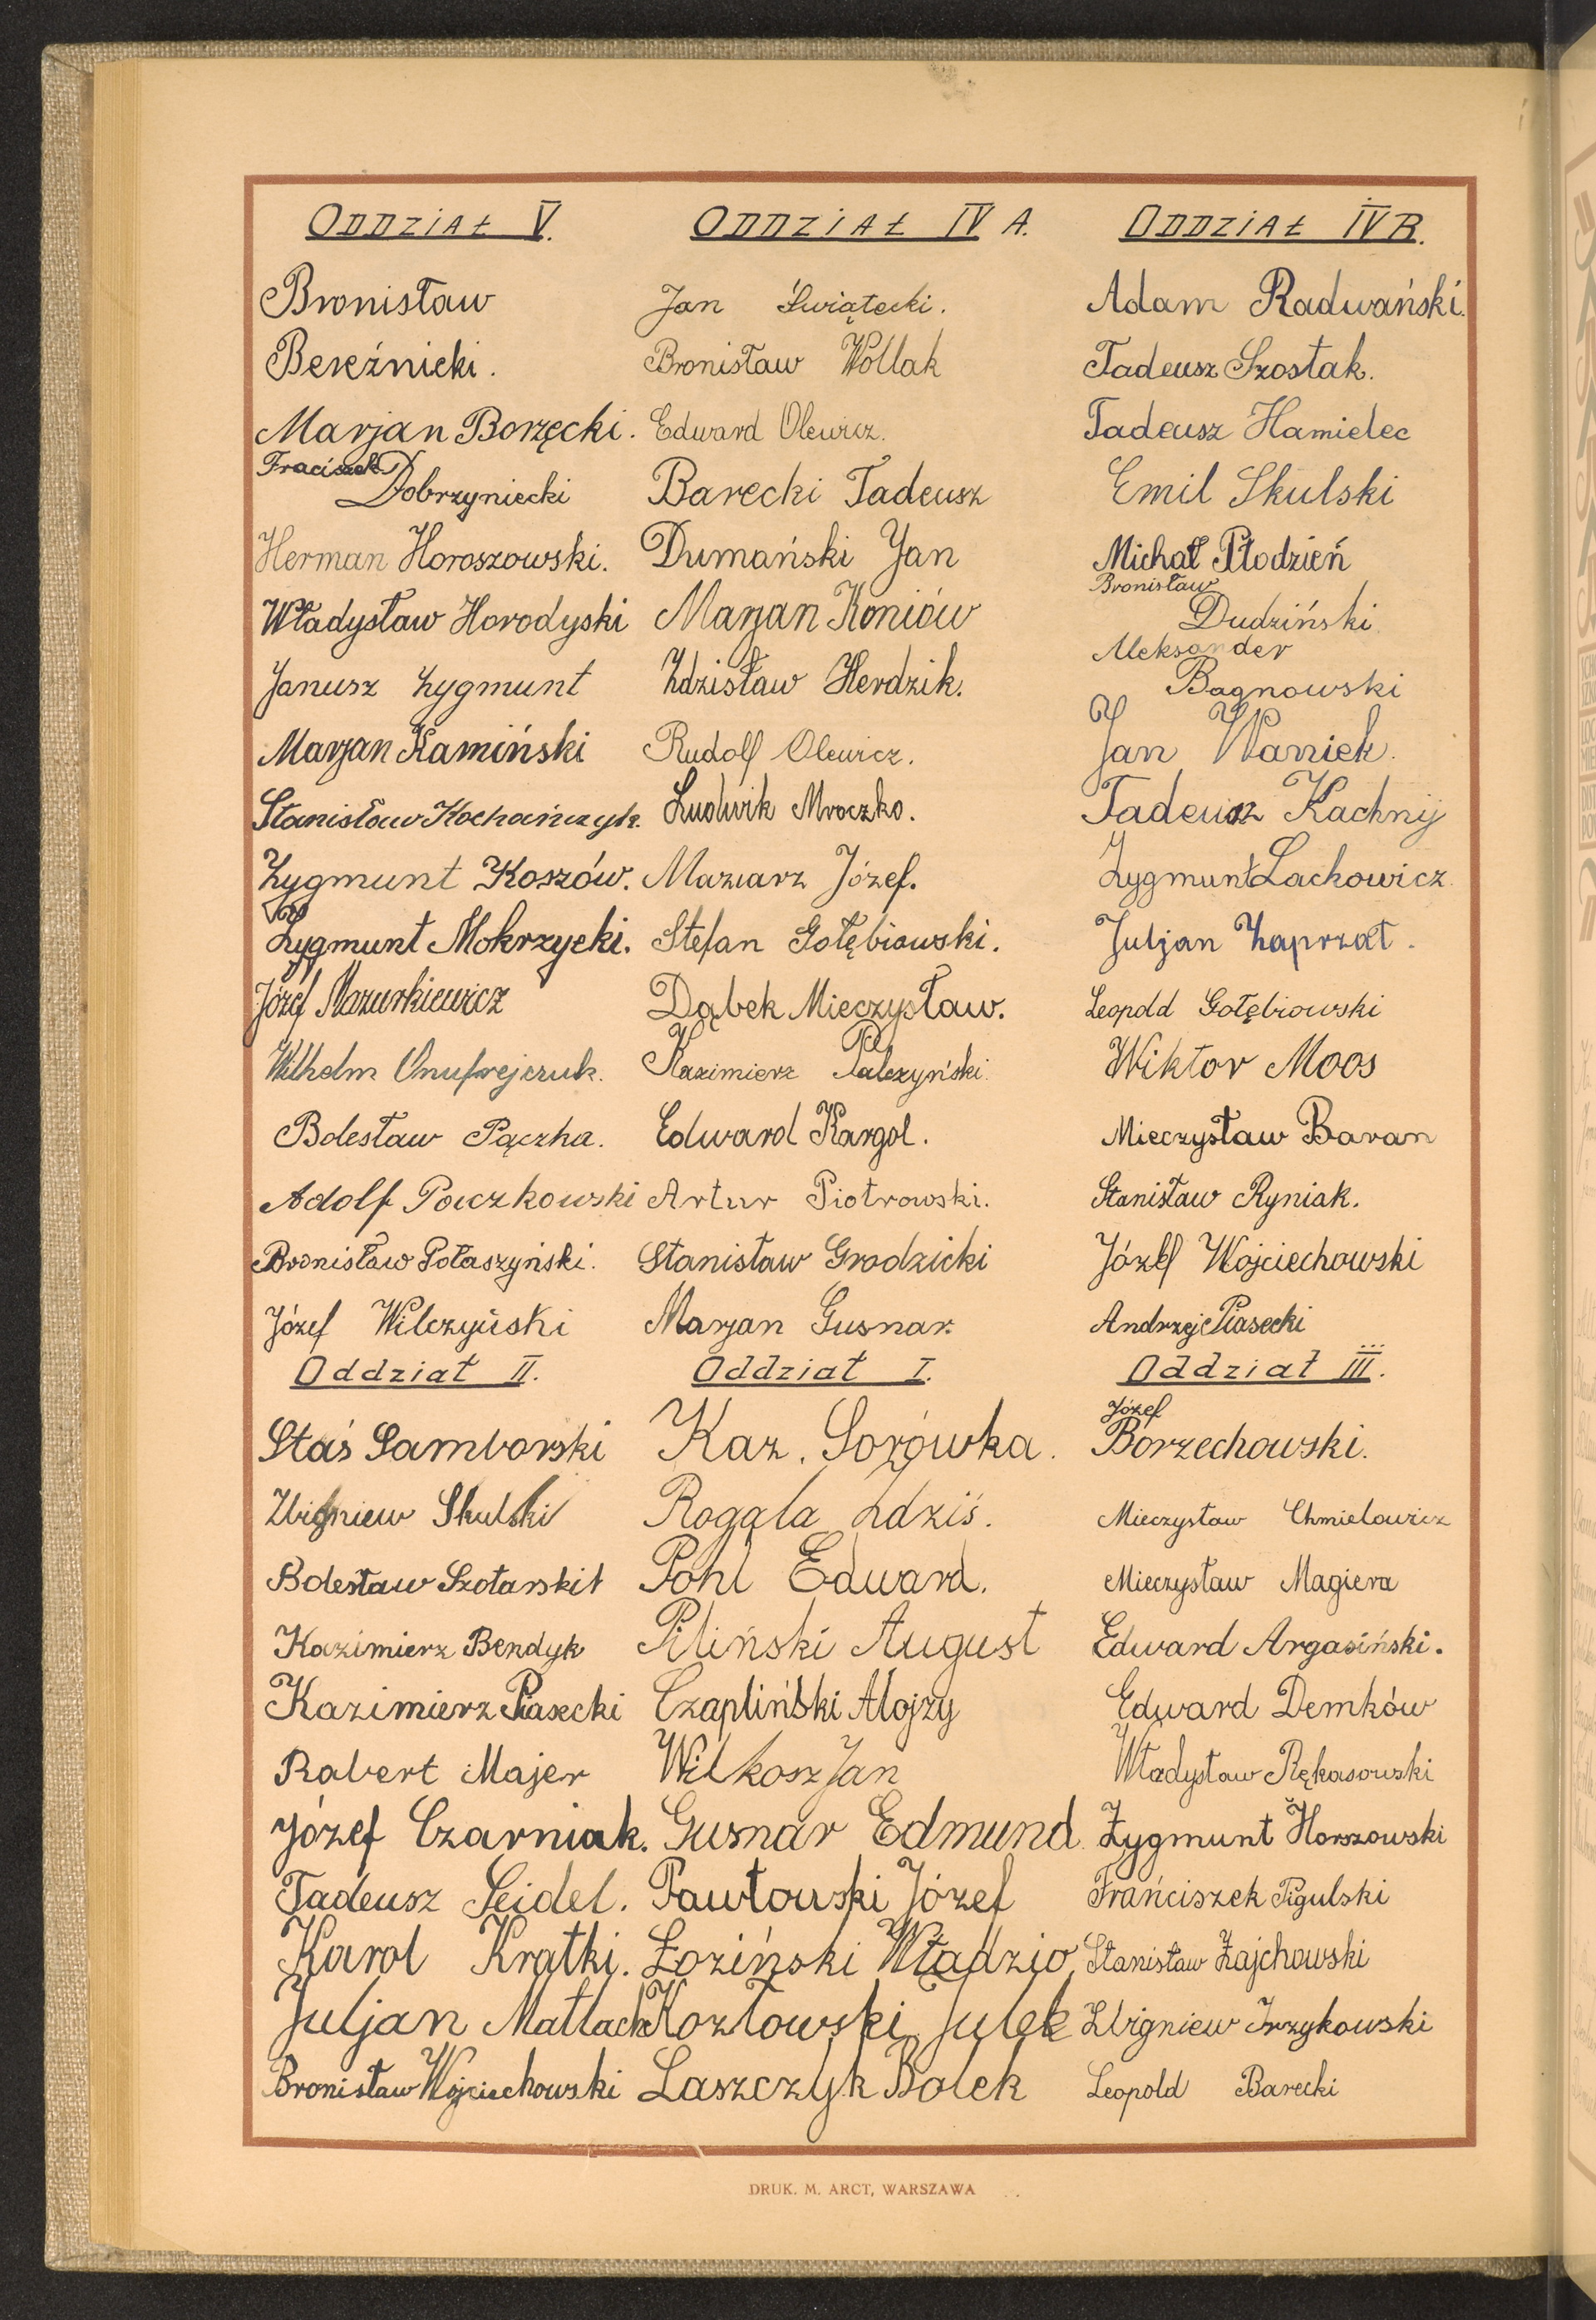 ODDZIAŁ V.
Bronisław
Bereźnicki.
Marjan Borzęcki.
Fraciszek
Dobrzyniecki
Herman Horoszowski.
Władysław Horodyski
Janusz Zygmunt
Marjan Kamiński
Stanisław Kochańczyk.
Zygmunt Koszów.
Zygmunt Mokrzycki.
Józef Mazurkiewicz
Wilhelm Onufrejczuk.
Bolesław Pączka.
Adolf Powczkowski
Bronisław Potaszyński.
Józef Wilczyński
ODDZIAŁ IV A.
Jan Świątecki.
Bronisław Wollak
Edward Olewicz.
Barecki Tadeusz
Dumański Jan
Marjan Koniów
Zdzisław Herdzik.
Rudolf Olewicz.
Ludwik Mroczko.
Maziarz Józef.
Stefan Gołębiowski.
Dąbek Mieczysław.
Kazimierz Palczyński.
Edward Kargol.
Artur Piotrowski.
Stanisław Grodzicki
Marjan Gusnar.
ODDZIAŁ IV B.
Adam Radwański.
Tadeusz Szostak.
Tadeusz Hamielec
Emil Skulski
Michał Płodzień
Bronisław
Dudziński
Aleksander
Bagnowski
Jan Waniek.
Tadeusz Kachnij
Zygmunt Lachowicz.
Juljan Zaprzał.
Leopold Gołębiowski
Wiktor Moos
Mieczysław Baran
Stanisław Ryniak.
Józef Wojciechowski
Andrzej Piasecki
Oddział II.
Staś Samborski
Zbigniew Skulski
Bolesław Szotarskit
Kazimierz Bendyk
Kazimierz Piasecki
Robert Majer
Józef Czarniak.
Tadeusz Seidel.
Karol Kratki.
Juljan Matlach
Bronisław Wojciechowski
Oddział I.
Kaz. Sorówka.
Rogala Zdziś.
Pohl Edward.
Piliński August
Czapliński Alojzy
Wilkosz Jan
Gusnar Edmund.
Pawłowski Józef
Łoziński Władzio
Kozłowski Julek
Laszczyk Bolek
Oddział III.
Józef
Borzechowski.
Mieczysław Chmielowicz
Mieczysław Magiera
Edward Argasiński.
Edward Demków
Władysław Rękasowski
Zygmunt Horszowski
Frańciszek Pigulski
Stanisław Zajchowski
Zbigniew Irzykowski
Leopold Barecki
DRUK. M. ARCT, WARSZAWA